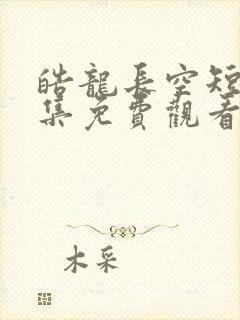 皓龍長空短
集免費觀看
木采